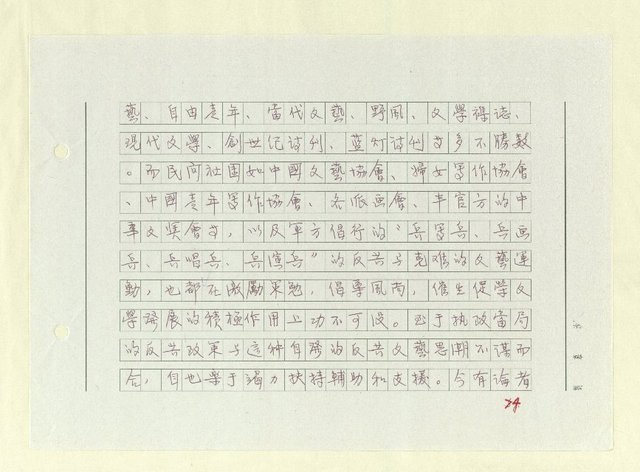 藝、自由青年、當代文藝、野風、文學雜誌、
現代文學、創世紀诗刊、蓝灯诗刊等多不勝數
。而民间社团如中國文藝協會、婦女寫作協會
、中國青年寫作協會、各派画會、半官方的中
華文奖會等，以及軍方倡行的“兵寫兵、兵画
兵、兵唱兵、兵演兵”的反共与克难的文藝運
動，也都在激勵東勉，倡導風尚，催生促學文
學發展的積極作用上功不可没。至于执政當局
的反共政策与这种自發的反共文藝思潮不謀而
合，自也樂于竭力扶持輔助和支援。今有論者
24